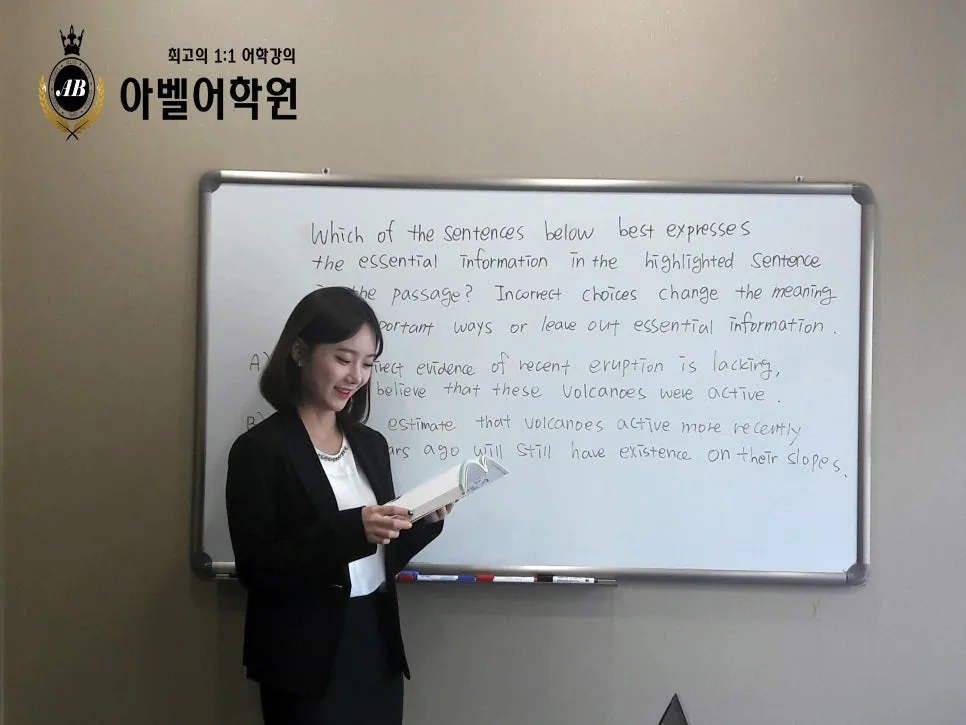 최고의 1:1 어학강의
아벨어학원
AB
Which of the sentences below best expresses
the essential information in the highlighted sentence
the passage? Incorrect choices change the meaning
portant ways or leave out essential information.
A) irect evidence of recent eruption is lacking,
believe that these volcanoes were active.
B) estimate that volcanoes active more recently
ars ago will still have existence on their slopes.